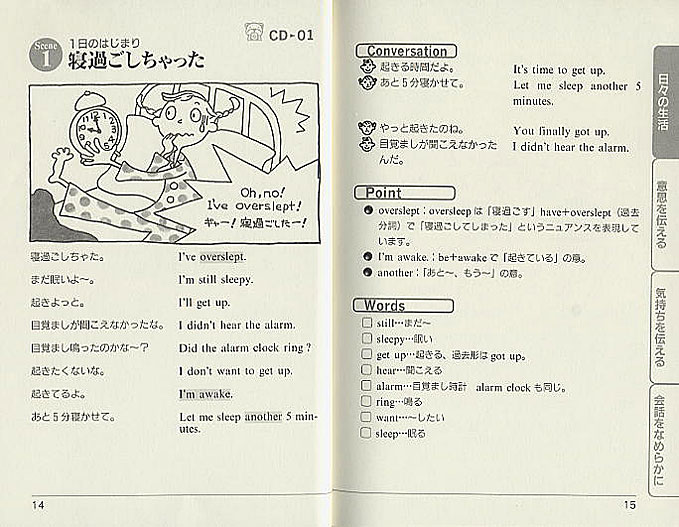 Scene 1
1日のはじまり
寝過ごしちゃった
CD-01
Oh, no!
I've overslept!
ギャー！寝過ごしたー！
寝過ごしちゃた。 I've overslept.
まだ眠いよ～。 I'm still sleepy.
起きよっと。 I'll get up.
目覚ましが聞こえなかったな。 I didn't hear the alarm.
目覚まし鳴ったのかな～？ Did the alarm clock ring?
起きたくないな。 I don't want to get up.
起きてるよ。 I'm awake.
あと5分寝かせて。 Let me sleep another 5 min-
utes.
14
Conversation
起きる時間だよ。 It's time to get up.
あと5分寝かせて。 Let me sleep another 5
minutes.
やっと起きたのね。 You finally got up.
目覚ましが聞こえなかった I didn't hear the alarm.
んだ。
Point
● overslept：oversleepは「寝過ごす」have+overslept（過去
分詞）で「寝過ごしてしまった」というニュアンスを表現して
います。
● I'm awake.：be+awakeで「起きている」の意。
● another：「あと～、もう～」の意。
Words
□ still…まだ～
□ sleepy…眠い
□ get up…起きる、過去形はgot up。
□ hear…聞こえる
□ alarm…目覚まし時計 alarm clockも同じ。
□ ring…鳴る
□ want…～したい
□ sleep…眠る
15
日々の生活
意思を伝える
気持ちを伝える
会話をなめらかに